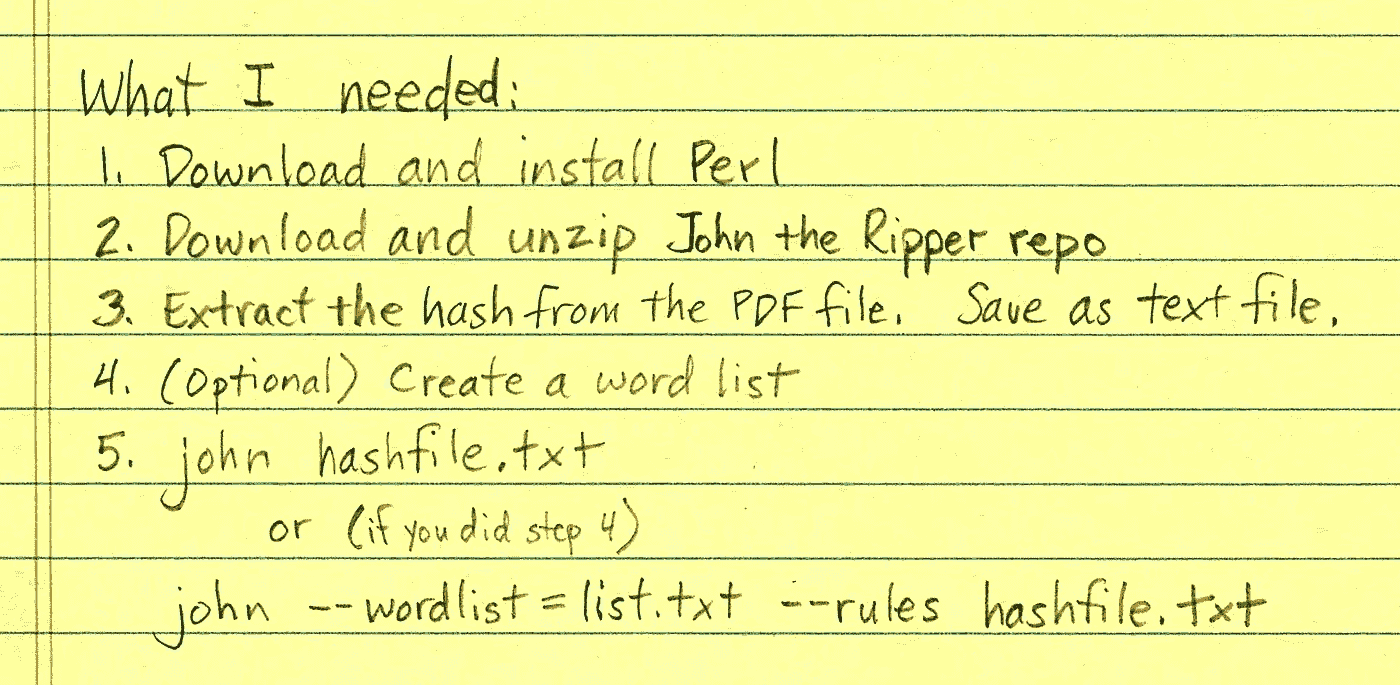 What I needed:
1. Download and install Perl
2. Download and unzip John the Ripper repo
3. Extract the hash from the PDF file. Save as text file.
4. (Optional) Create a word list
5. john hashfile.txt
or (if you did step 4)
john --wordlist=list.txt --rules hashfile.txt